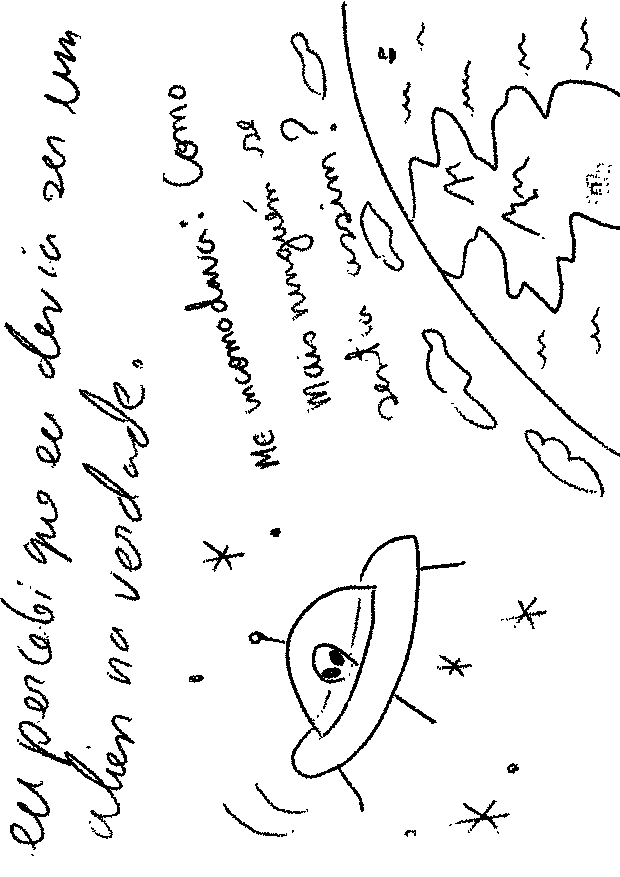 eu percebi que eu devia ser um
alien na verdade.
Me incomodava: Como
Mais ninguém se
sentia assim?